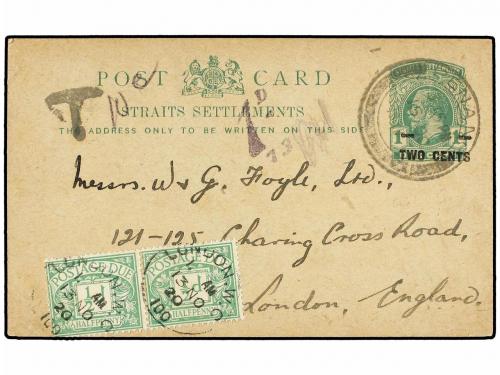 POST CARD
STRAITS SETTLEMENTS
THE ADDRESS ONLY TO BE WRITTEN ON THIS SIDE
T
1D
PENANG
1c
TWO CENTS
Messrs. W & G. Foyle, Ltd.,
121-125, Charing Cross Road,
London, England.
POSTAGE DUE
HALFPENNY
POSTAGE DUE
HALFPENNY
LONDON. W.C
AM
13 NO
20
100